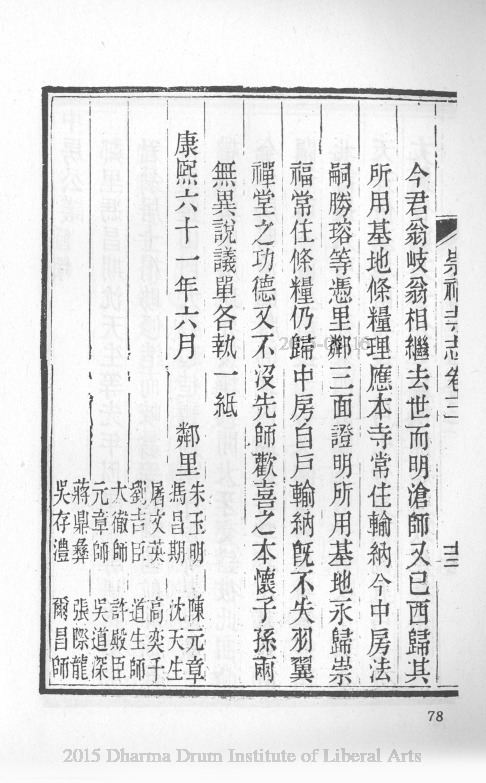 崇福寺志卷三
十三
今君翁岐翁相繼去世而明滄師又已西歸其
所用基地條糧理應本寺常住輸納今中房法
嗣勝瑢等憑里鄰三面證明所用基地永歸崇
福常住條糧仍歸中房自戶輸納旣不失羽翼
禪堂之功德又不沒先師歡喜之本懷子孫兩
無異說議單各執一紙
康熙六十一年六月
鄰里
朱玉明 陳元章
馮昌期 沈天生
屠文英 高奕千
劉吉臣 道生師
大徹師 許殿臣
元章師 吳道深
蔣鼎彝 張際龍
吳存澧 爾昌師
78
2015 Dharma Drum Institute of Liberal Arts